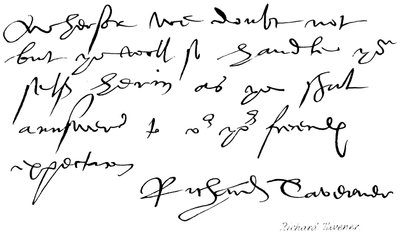 Wherfor we doubt not
but ye woll so handle yor
self herin as ye shal
annswere to or yor
expectacon
Richard Taverner
Richard Tavener.